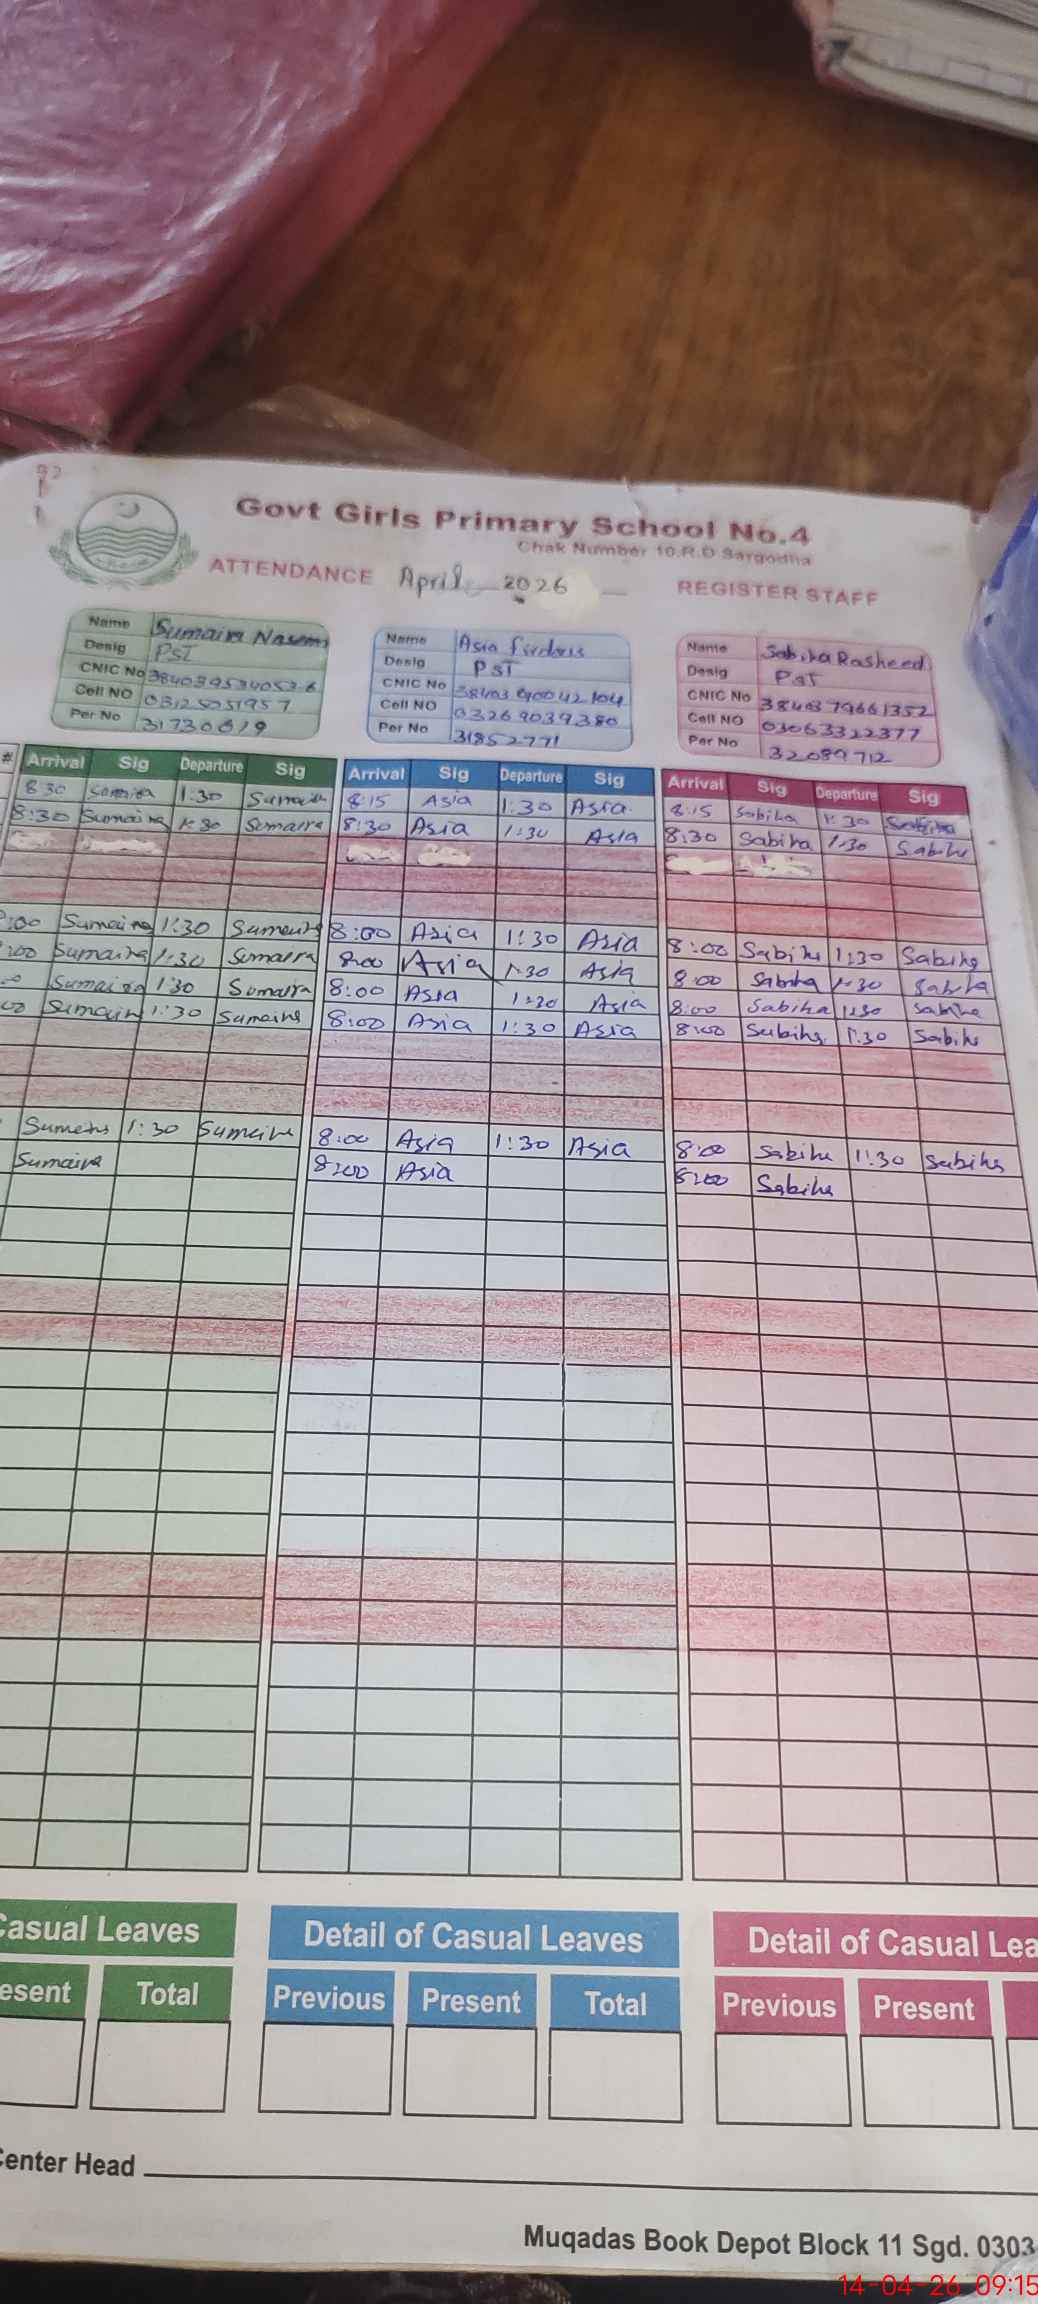 Govt Girls Primary School No.4
Chak Number 10.R.D Sargodha
ATTENDANCE April 2026 REGISTER STAFF
Name Sumaira Nasem
Desig PST
CNIC No
Cell NO 03125051957
Per No 31730619
Name Asia firdous
Desig PST
CNIC No
Cell NO 03269039380
Per No 31852771
Name Sabiha Rasheed
Desig PST
CNIC No 3840379661352
Cell NO 03063322377
Per No 32089712
# Arrival Sig Departure Sig Arrival Sig Departure Sig Arrival Sig Departure Sig
8:30 Sumaira 1:30 Sumaira 8:15 Asia 1:30 Asia 8:15 Sabiha 1:30 Sabiha
8:30 Sumaira 1:30 Sumaira 8:30 Asia 1:30 Asia 8:30 Sabiha 1:30 Sabiha
:00 Sumaira 1:30 Sumaira 8:00 Asia 1:30 Asia 8:00 Sabiha 1:30 Sabiha
:00 Sumaira 1:30 Sumaira 8:00 Asia 1:30 Asia 8:00 Sabiha 1:30 Sabiha
00 Sumaira 1:30 Sumaira 8:00 Asia 1:30 Asia 8:00 Sabiha 1:30 Sabiha
00 Sumaira 1:30 Sumaira 8:00 Asia 1:30 Asia 8:00 Sabiha 1:30 Sabiha
Sumaira 1:30 Sumaira 8:00 Asia 1:30 Asia 8:00 Sabiha 1:30 Sabiha
Sumaira 8:00 Asia 8:00 Sabiha
Casual Leaves Detail of Casual Leaves Detail of Casual Lea
esent Total Previous Present Total Previous Present
Center Head
Muqadas Book Depot Block 11 Sgd. 0303
14-04-26 09:15